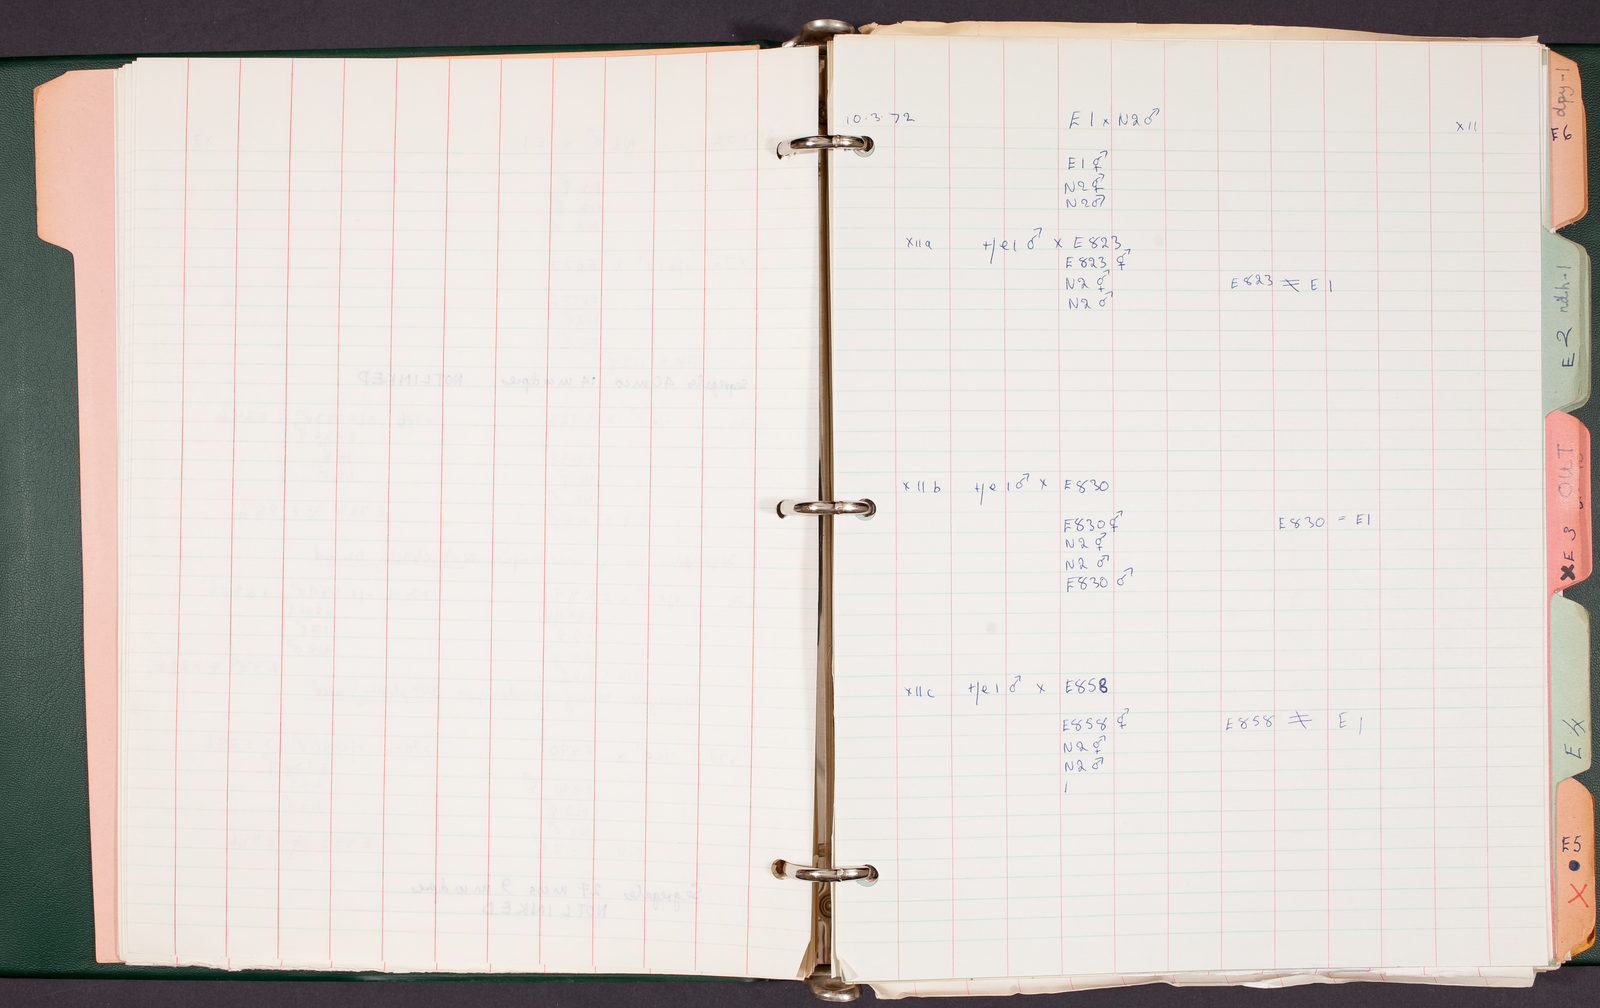 10.3.72 E1 x N2♂ x11
E1⚥
N2⚥
N2♂
x11a +/e1 ♂ x E823
E823 ⚥
N2 ⚥ E823 ≠ E1
N2 ♂
x11b +/e1♂ x E830
E830⚥ E830 = E1
N2 ⚥
N2 ♂
E830 ♂
x11c +/e1 ♂ x E858
E858 ⚥ E858 ≠ E1
N2 ⚥
N2 ♂
1
E6 dpy-1
E2
E3 OUT
E4
E5
X
NOT LINKED
NOT LINKED